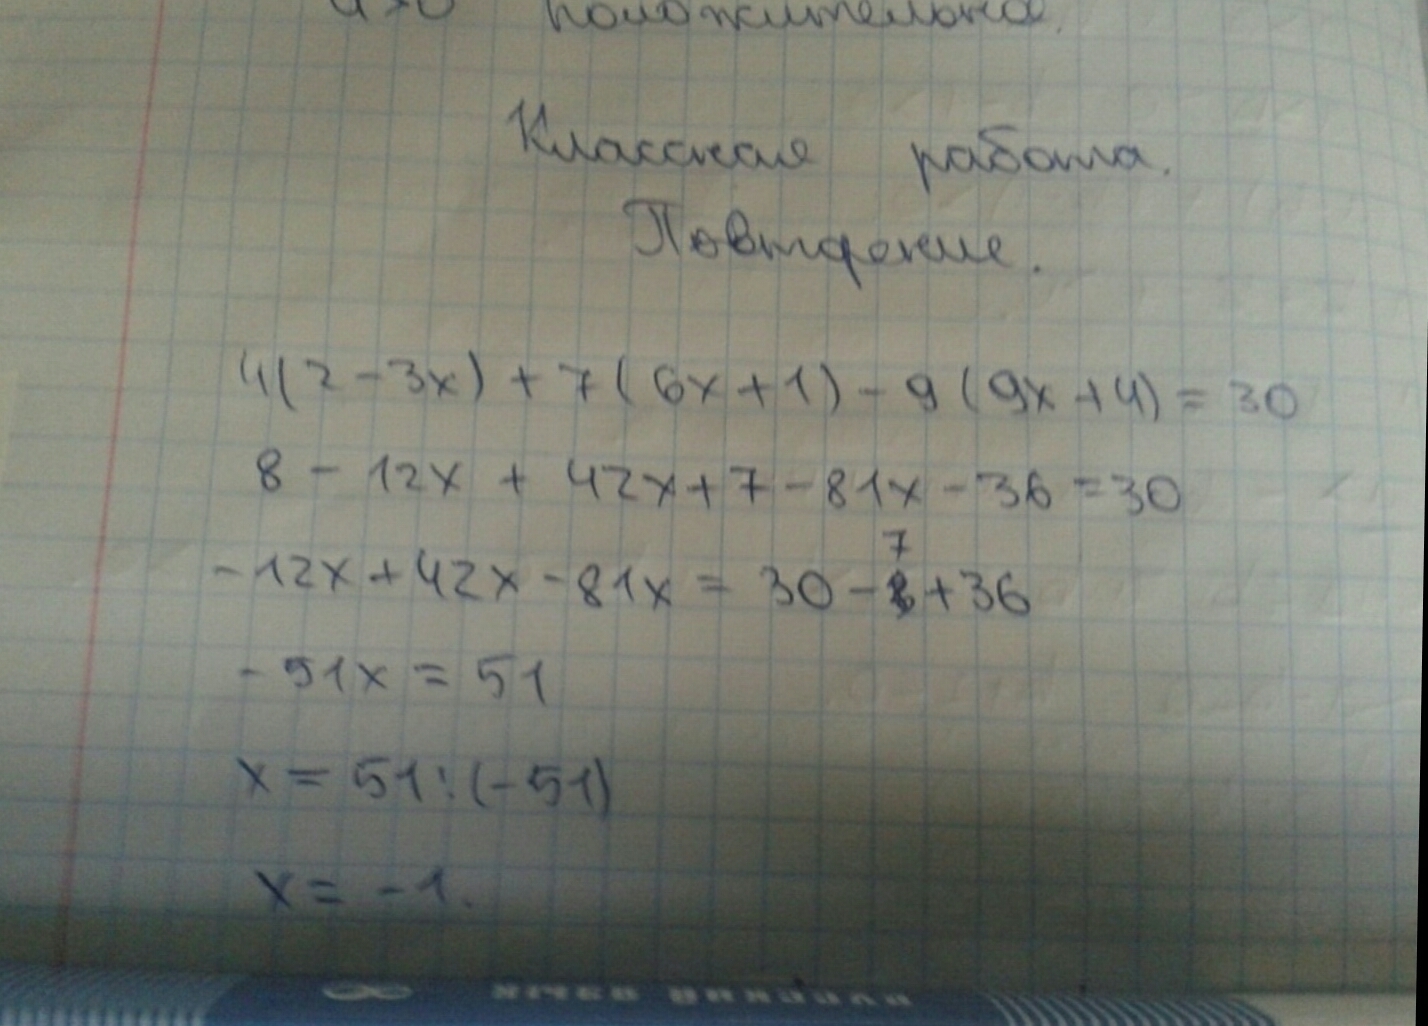 a>0 положительное.
Классная работа.
Повторение.
4(2-3x)+7(6x+1)-9(9x+4)=30
8-12x+42x+7-81x-36=30
7
-12x+42x-81x=30-8+36
-51x=51
x=51:(-51)
x=-1.